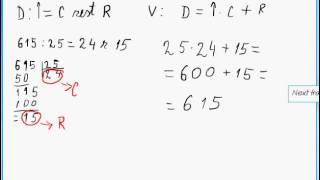 D:Î=C rest R
V: D=Î·C+R
615:25=24 r.15
25·24+15=
=600+15=
=615
615 25
50 24
115
100
=15
C
R
Next fra